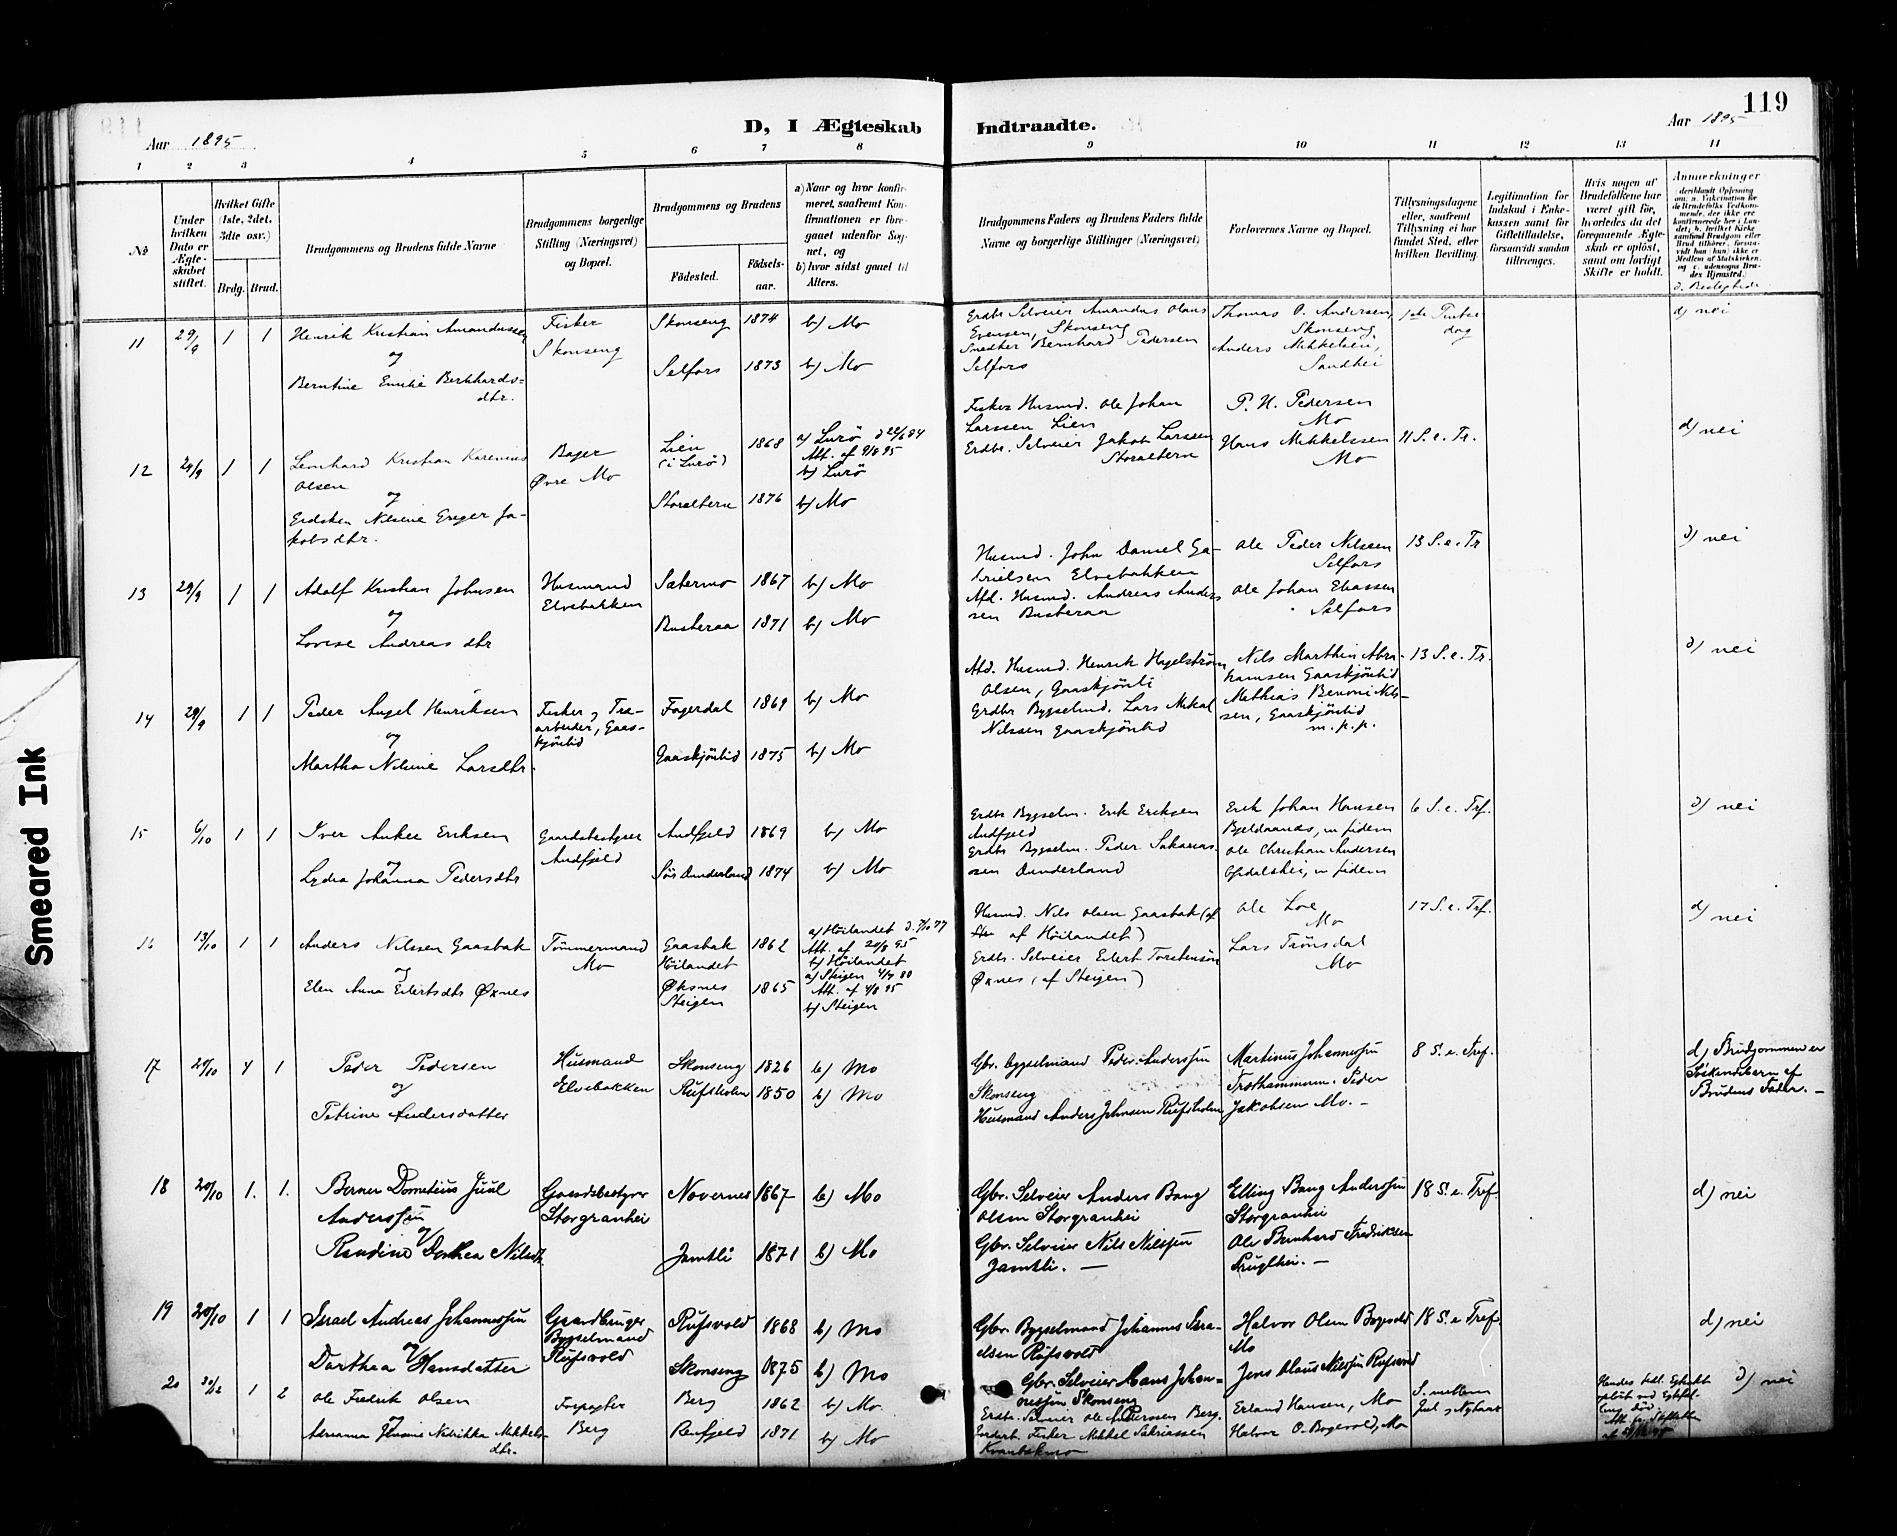 119
Aar 1895
D, I Ægteskab Indtraadte.
Aar 1895
1 2 3 4 5 6 7 8 9 10 11 12 13 14
No
Under hvilken Dato er Ægteskabet stiftet.
Hvilket Gifte (1ste, 2det, 3die osv.)
Brdg. Brud.
Brudgommens og Brudens fulde Navne
Brudgommens borgerlige Stilling (Næringsvei) og Bopæl.
Brudgommens og Brudens
Födested.
Födsels-aar.
a) Naar og hvor konfirmeret, saafremt Konfirmationen er foregaaet udenfor Sognet, og
b) hvor sidst gaaet til Alters.
Brudgommens Faders og Brudens Faders fulde Navne og borgerlige Stillinger (Næringsvei)
Forlovernes Navne og Bopæl.
Tillysningsdagene eller, saafremt Tillysning ei har fundet Sted, efter hvilken Bevilling.
Legitimation for Indskud i Enkekassen samt for Giftetilladelse, forsaavidt saadan tiltrænges.
Hvis nogen af Brudefolkene har været gift før, hvorledes da det foregaaende Ægteskab er opløst, samt om lovligt Skifte er holdt.
Anmerkninger
d. Beslegtede
11 29/9 1 1 Henrik Kristian Amandussen
og
Berntine Emilie Bernhards-
dtr.
Fisker
Skonseng
Skonseng 1874 b) Mo
Selfors 1873 b) Mo
Erdbr Selveier Amandus Olaus
Evensen, Skonseng
Bernhard Pedersen
Selfors
Thomas O. Andersen,
Skonseng
Anders Mikkelsen,
Sandhei
1ste Pintse
dag
d) nei
12 29/9 1 1 Leonhard Kristian Karenius
Olsen
og
Nilsine Greger Ja-
kobsdtr.
Bager
Øvre Mo
Lien
(i Lurø)
1868
a) Lurø d 22/6 84
Att. af 9/8 95
b) Lurø
Storalteren 1876 b) Mo
Fisker Husmd. Ole Johan
Larssen Lien
Erdbr. Selveier Jakob Larssen
Storalteren
P. H. Pedersen
Mo
Hans Mikkelssen
Mo
11 S. e. Tr.
d) nei
13 29/9 1 1 Adolf Kristian Johnsen
og
Lovise Andreasdtr
Husmand
Elvebakken
Sætermo 1867 b) Mo
Busteraa 1871 b) Mo
Husmd. John Daniel Ga-
brielsen Elvebakken
Afd. Husmd. Andreas Anders
sen Busteraa
Ole Peder Nilssen
Selfors
Ole Johan Eliassen
Selfors
13 S. e. Tr
d) nei
14 29/9 1 1 Peder Angel Henriksen
og
Martha Nilsine Larsdtr.
Fisker, Træ-
arbeider, Gaas-
kjönlid
Fagerdal 1869 b) Mo
Gaaskjönlid 1875 b) Mo
Afd. Husmd. Henrik Hegelström
Olsen, Gaaskjönli
Erdbr Bygselmd. Lars Mikal
Nilssen Gaaskjönlid
Nils Marthin Abra-
hamsen Gaaskjönlid
Mathias Benoni Nils-
sen, Gaaskjönlid
m. p. p.
13 S. e. Tr.
d) nei
15 6/10 1 1 Iver Anker Eriksen
og
Lydia Johanna Pedersdtr
Gaardsbestyrer
Andfjeld
Andfjeld 1869 b) Mo
Sör Dunderland 1874 b) Mo
Erdbr Bygselm. Erik Eriksen
Andfjeld
Erdbr Bygselm. Peder Sakarias-
sen Dunderland
Erik Johan Hansen
Bjeldaanes, in fidem
Ole Christian Andersen
in fidem
6 S. e. Trf.
d) nei
16 13/10 1 1 Anders Nilssen Gaasbak
og
Elen Anna Eilertsdtr Øxnes
Tömmermand
Mo
Gaasbak
Höilandet
1862
a) Höilandet d. 7/10 77
Att. af 20/8 95
b) Höilandet
Øksnes
Steigen
1865
a) Steigen 4/7 80
Att. af 4/8 95
b) Steigen
Husmd. Nils Olsen Gaasbak (af
af Höilandet)
Erdbr. Selveier Eilert Torstensön
Øxnes (af Steigen)
Ole Loe
Mo
Lars Trönsdal
Mo
17 S. e. Trf.
d) nei
17 20/10 4 1 Peder Pedersen
og
Petrine Andersdatter
Husmand
Elvebakken
Skonseng 1826 b) Mo
Rufsholm 1850 b) Mo
Gbr. bygselmand Peder Anderssen
Skonseng
Husmand Anders Johnsen Rufsholm
Martinus Johannessen
Peder
Jakobsen Mo. —
8 S. e. Tref.
d) Brudgommen er
Söskendebarn af
Brudens Fader. —
18 20/10 1. 1. Berner Dometius Juul
Anderssen
og
Randine Dorthea Nilsdt.
Gaardsbestyrer
Storgranhei
Novernes 1867 b) Mo
Jamtli 1871 b) Mo
Gbr. Selveier Anders Bang
Olsen Storgranhei
Gbr. Selveier Nils Nilssen
Jamtli. —
Elling Bang Anderssen
Storgranhei
Ole Bernhard Fredriksen
18 S. e. Tref.
d) nei
19 20/10 1 1 Israel Andreas Johannessen
og
Dorthea Hansdatter
Gaardbruger
Bygselmand
Rufsvold
Rufsvold 1868 b) Mo
Skonseng 1875 b) Mo
Gbr. Bygselmand Johannes Isra-
elsen Rufsvold
Gbr. Selveier Hans Johan-
nessen Skonseng
Halvor Olsen Bogvold
Mo
Jens Olaus Nilssen Rufsvold
18 S. e. Tref.
d) nei
20 30/12 1 2 Ole Fredrik Olsen
og
Adrianna Mikkels-
dtr.
Forpagter
Berg
Berg 1862 b) Mo
Renfjeld 1871 b) Mo
Erdbr. Selveier Ole Andersen Berg.
Fisker Mikkel Sakriassen
Erland Hansen, Mo
Halvor O. Bogevold, Mo
S. mellem
Jul og Nytaar
d) nei
Smeared Ink